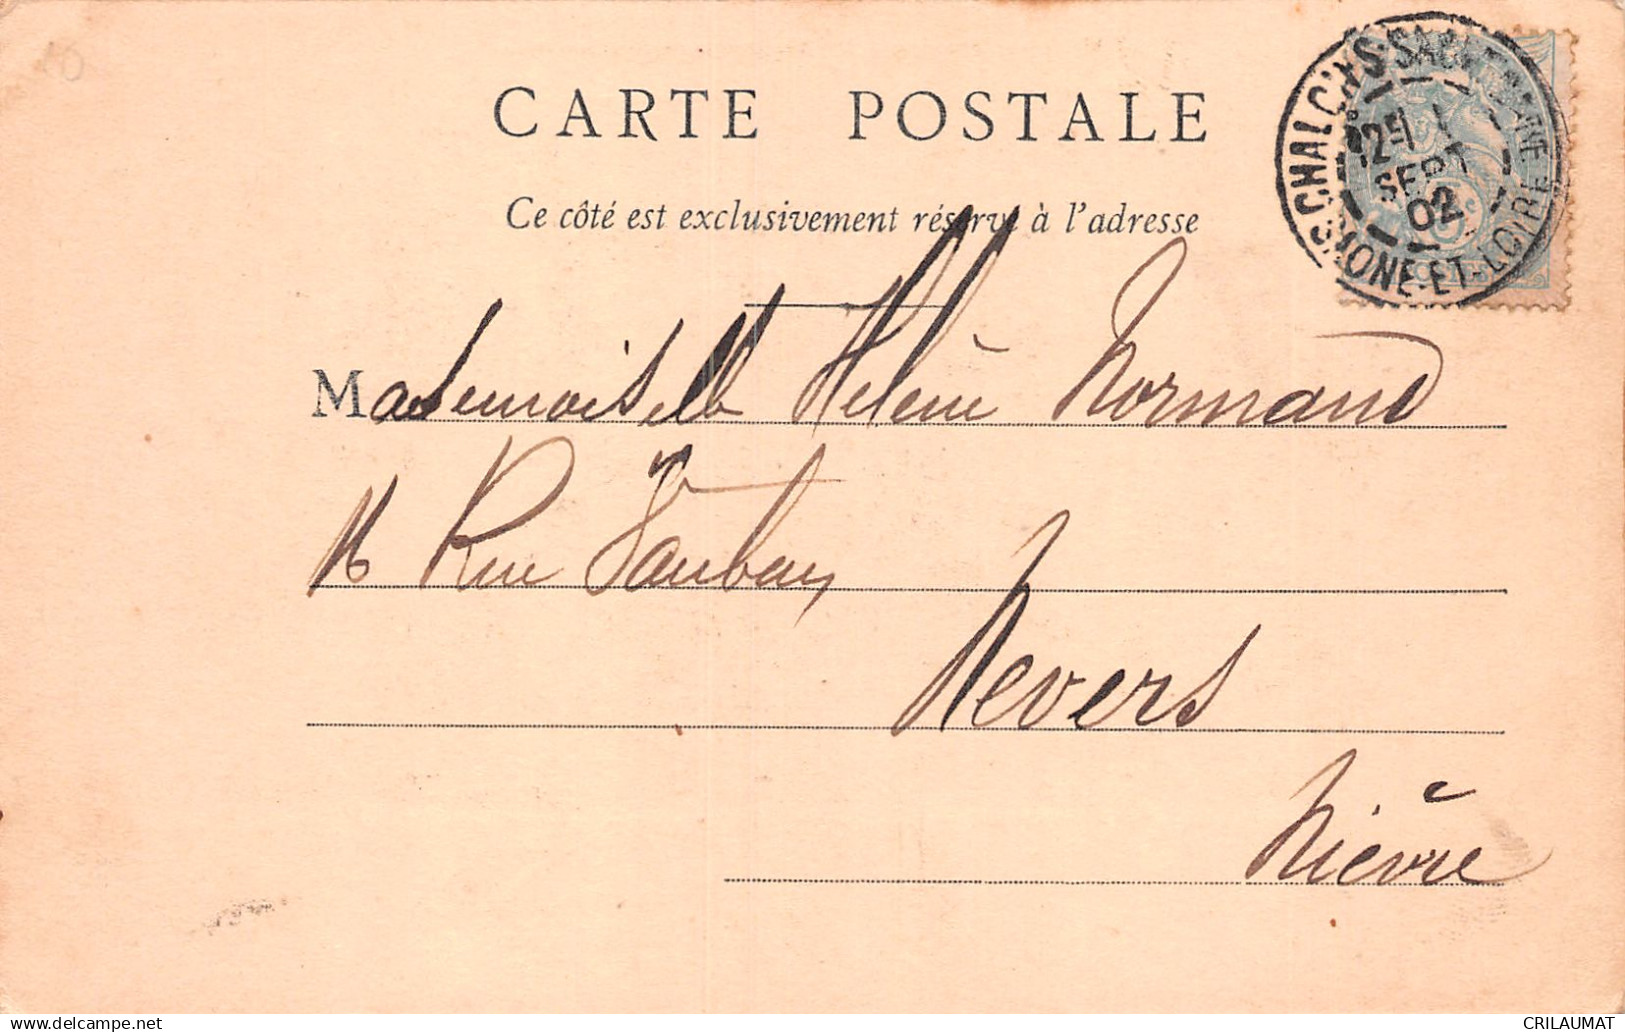 CARTE POSTALE
Ce côté est exclusivement réservé à l'adresse
CHALON-S-SAÔNE
SAONE-ET-LOIRE
SEPT
02
Mademoiselle Hélène Normand
Rue Vauban
Nevers
Nièvre
10
CRILAUMAT